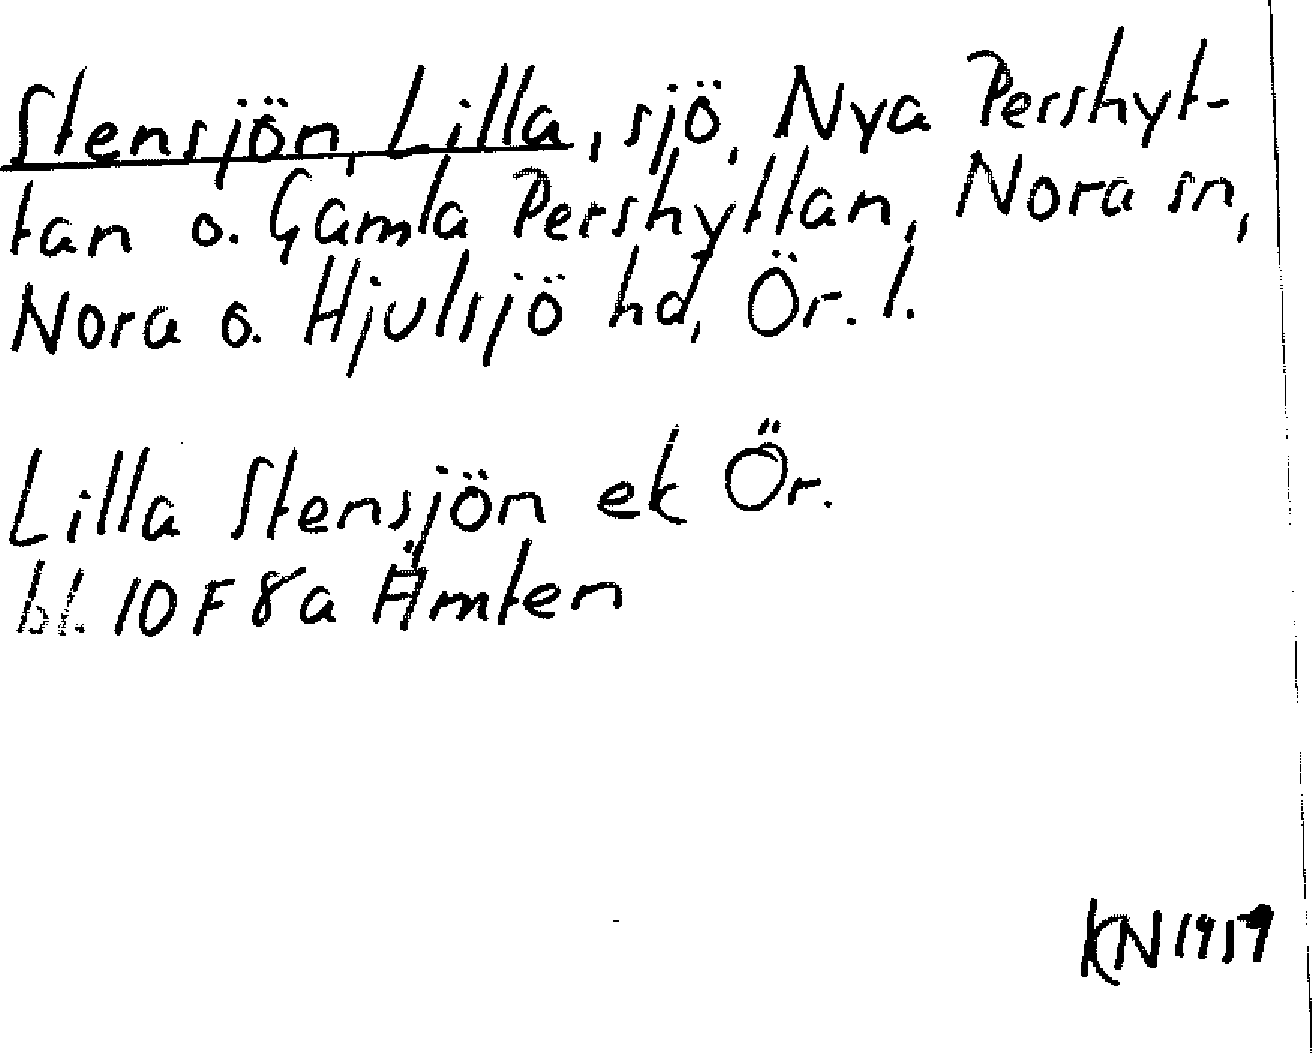 Stensjön, Lilla, sjö, Nya Pershyt-
tan o. Gamla Pershyttan, Nora sn,
Nora o. Hjulsjö hd, Ör. l.
Lilla Stensjön ek Ör.
bl. 10 F 8a Ämten
KN 1959